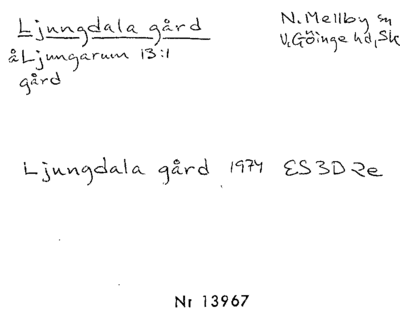 Ljungdala gård
N. Mellby sn
V. Göinge hd, Sk
å Ljungarum 13:1
gård
Ljungdala gård 1974 ES3D2e
Nr 13967